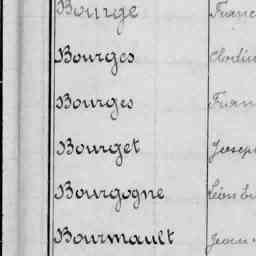 Bourge Franc
Bourges
Bourges
Bourget Joseph
Bourgogne
Bourmault Jean